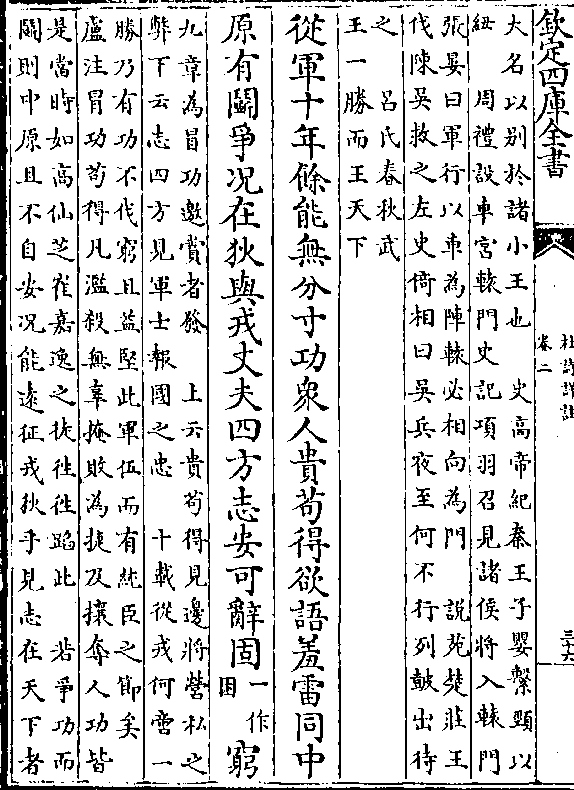 欽定四庫全書
杜詩詳註
卷二
三十六
大名以別於諸小王也　史高帝紀秦王子嬰繫頸以
組　周禮設車宮轅門史記項羽召見諸侯將入轅門
張晏曰軍行以車為陣轅必相向為門　說苑楚莊王
伐陳吳救之左史倚相曰吳兵夜至何不行列鼓出待
之　呂氏春秋武
王一勝而王天下
從軍十年餘能無分寸功衆人貴苟得欲語羞雷同中
原有鬭爭况在狄與戎丈夫四方志安可辭固一作困窮
九章為冒功邀賞者發　上云貴苟得見邊將營私之
弊下云志四方見軍士報國之忠　十載從戎何嘗一
勝乃有功不伐窮且益堅此軍伍而有純臣之節矣
盧注冒功苟得凡濫殺無辜掩敗為捷及攘奪人功皆
是當時如高仙芝崔嘉逸之徒往往蹈此　若爭功而
鬭則中原且不自安况能遠征戎狄乎見志在天下者